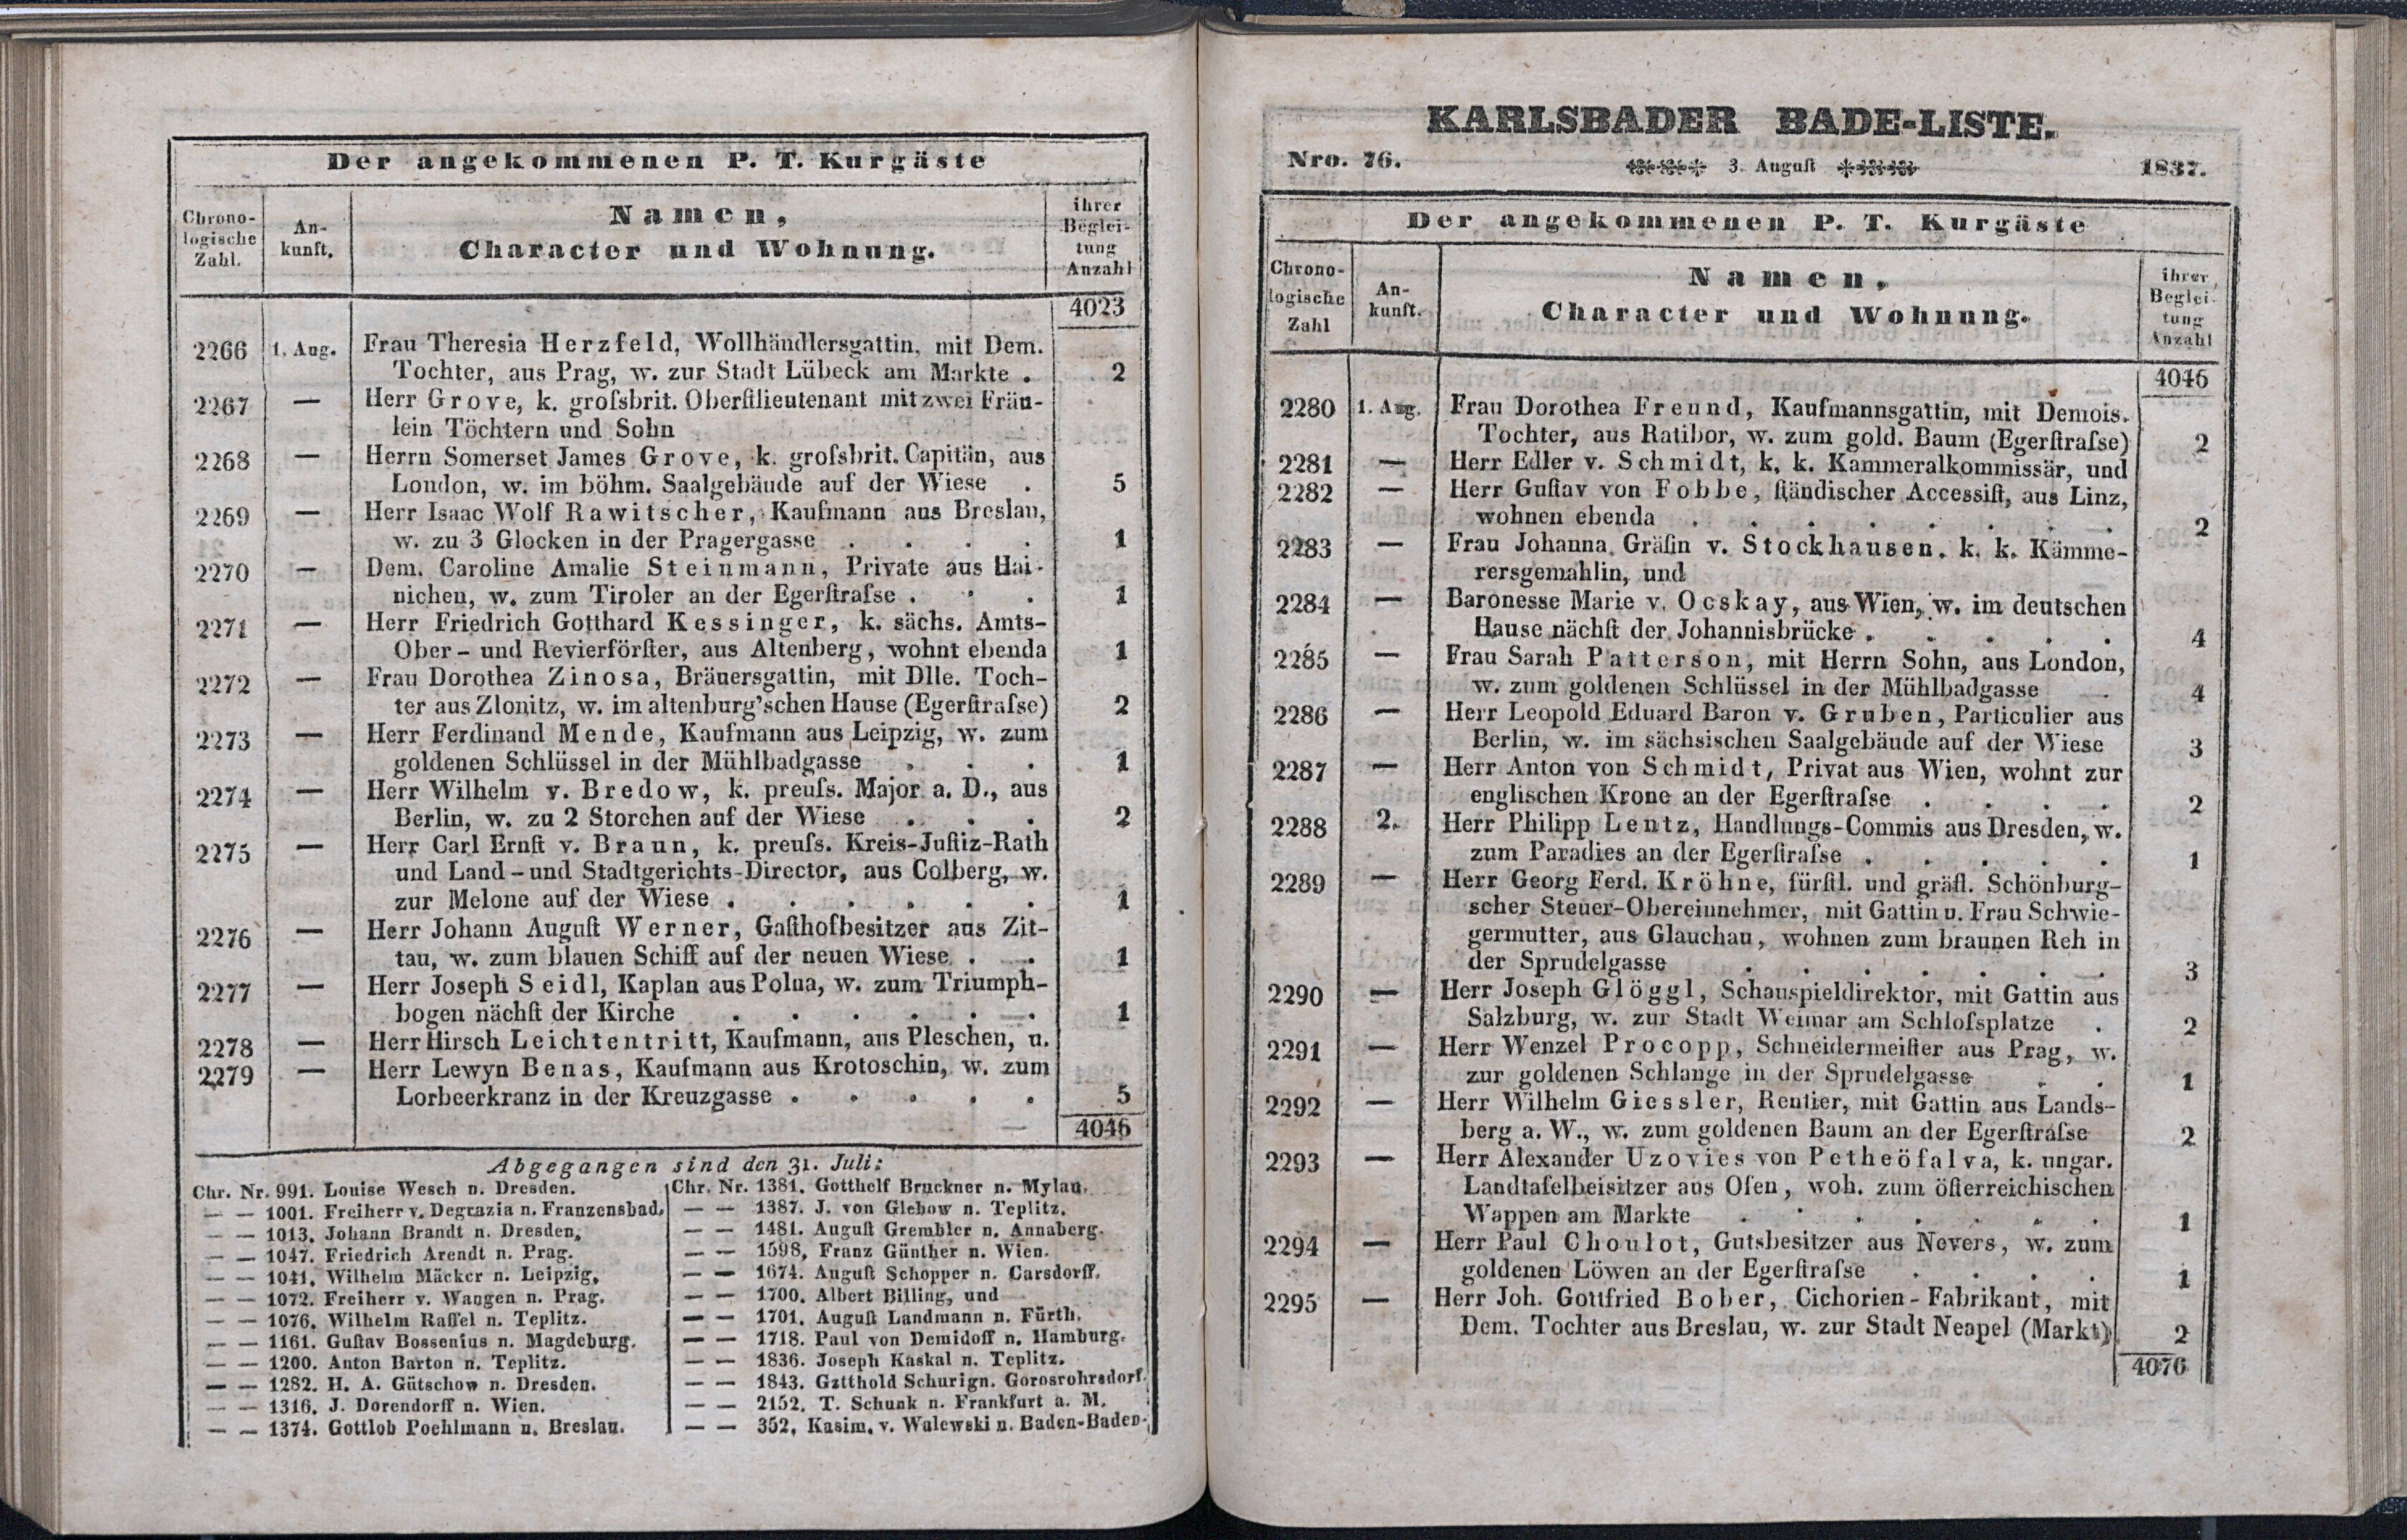 Der angekommenen P. T. Kurgäste
Chrono-
logische
Zahl.
An-
kunft.
Namen,
Character und Wohnung.
ihrer
Beglei-
tung
Anzahl
4023
2266 1. Aug. Frau Theresia Herzfeld, Wollhändlersgattin, mit Dem.
Tochter, aus Prag, w. zur Stadt Lübeck am Markte . 2
2267 — Herr Grove, k. grofsbrit. Oberſtlieutenant mit zwei Fräu-
lein Töchtern und Sohn
2268 — Herrn Somerset James Grove, k. grofsbrit. Capitän, aus
London, w. im böhm. Saalgebäude auf der Wiese . 5
2269 — Herr Isaac Wolf Rawitscher, Kaufmann aus Breslau,
w. zu 3 Glocken in der Pragergasse . . . . 1
2270 — Dem. Caroline Amalie Steinmann, Private aus Hai-
nichen, w. zum Tiroler an der Egerſtrafse . . . 1
2271 — Herr Friedrich Gotthard Kessinger, k. sächs. Amts-
Ober- und Revierförſter, aus Altenberg, wohnt ebenda 1
2272 — Frau Dorothea Zinosa, Bräuersgattin, mit Dlle. Toch-
ter aus Zlonitz, w. im altenburg'schen Hause (Egerſtrafse) 2
2273 — Herr Ferdinand Mende, Kaufmann aus Leipzig, w. zum
goldenen Schlüssel in der Mühlbadgasse . . . 1
2274 — Herr Wilhelm v. Bredow, k. preufs. Major a. D., aus
Berlin, w. zu 2 Storchen auf der Wiese . . . 2
2275 — Herr Carl Ernſt v. Braun, k. preufs. Kreis-Juſtiz-Rath
und Land- und Stadtgerichts-Director, aus Colberg, w.
zur Melone auf der Wiese . . . . . . 1
2276 — Herr Johann Auguſt Werner, Gaſthofbesitzer aus Zit-
tau, w. zum blauen Schiff auf der neuen Wiese . . 1
2277 — Herr Joseph Seidl, Kaplan aus Polna, w. zum Triumph-
bogen nächſt der Kirche . . . . . . 1
2278 — Herr Hirsch Leichtentritt, Kaufmann, aus Pleschen, u.
2279 — Herr Lewyn Benas, Kaufmann aus Krotoschin, w. zum
Lorbeerkranz in der Kreuzgasse . . . . . 5
4046
Abgegangen sind den 31. Juli:
Chr. Nr. 991. Louise Wesch n. Dresden.
— — 1001. Freiherr v. Degrazia n. Franzensbad.
— — 1013. Johann Brandt n. Dresden.
— — 1047. Friedrich Arendt n. Prag.
— — 1041. Wilhelm Mäcker n. Leipzig.
— — 1072. Freiherr v. Wangen n. Prag.
— — 1076. Wilhelm Raffel n. Teplitz.
— — 1161. Guſtav Bossenius n. Magdeburg.
— — 1200. Anton Barton n. Teplitz.
— — 1282. H. A. Gütschow n. Dresden.
— — 1316. J. Dorendorff n. Wien.
— — 1374. Gottlob Poehlmann n. Breslau.
Chr. Nr. 1381. Gotthelf Bruckner n. Mylau.
— — 1387. J. von Glebow n. Teplitz.
— — 1481. Auguſt Grembler n. Annaberg.
— — 1598. Franz Günther n. Wien.
— — 1674. Auguſt Schopper n. Carsdorff.
— — 1700. Albert Billing, und
— — 1701. Auguſt Landmann n. Fürth.
— — 1718. Paul von Demidoff n. Hamburg.
— — 1836. Joseph Kaskal n. Teplitz.
— — 1843. Gztthold Schurign. Gorosrohrsdorf.
— — 2152. T. Schunk n. Frankfurt a. M.
— — 352. Kasim. v. Walewski n. Baden-Baden.
KARLSBADER BADE-LISTE.
Nro. 76. 3. Auguſt 1837.
Der angekommenen P. T. Kurgäste
Chrono-
logische
Zahl
An-
kunft.
Namen,
Character und Wohnung.
ihrer
Beglei-
tung
Anzahl
4046
2280 1. Aug. Frau Dorothea Freund, Kaufmannsgattin, mit Demois.
Tochter, aus Ratibor, w. zum gold. Baum (Egerſtrafse) 2
2281 — Herr Edler v. Schmidt, k. k. Kammeralkommissär, und
2282 — Herr Guſtav von Fobbe, ſtändischer Accessiſt, aus Linz,
wohnen ebenda . . . . . . . . 2
2283 — Frau Johanna Gräfin v. Stockhausen, k. k. Kämme-
rersgemahlin, und
2284 — Baronesse Marie v. Ocskay, aus Wien, w. im deutschen
Hause nächſt der Johannisbrücke . . . . . 4
2285 — Frau Sarah Patterson, mit Herrn Sohn, aus London,
w. zum goldenen Schlüssel in der Mühlbadgasse . 4
2286 — Herr Leopold Eduard Baron v. Gruben, Particulier aus
Berlin, w. im sächsischen Saalgebäude auf der Wiese 3
2287 — Herr Anton von Schmidt, Privat aus Wien, wohnt zur
englischen Krone an der Egerſtrafse . . . . 2
2288 2. Herr Philipp Lentz, Handlungs-Commis aus Dresden, w.
zum Paradies an der Egerſtrafse . . . . . 1
2289 — Herr Georg Ferd. Kröhne, fürſtl. und gräfl. Schönburg-
scher Steuer-Obereinnehmer, mit Gattin u. Frau Schwie-
germutter, aus Glauchau, wohnen zum braunen Reh in
der Sprudelgasse . . . . . . . 3
2290 — Herr Joseph Glöggl, Schauspieldirektor, mit Gattin aus
Salzburg, w. zur Stadt Weimar am Schlofsplatze . 2
2291 — Herr Wenzel Procopp, Schneidermeiſter aus Prag, w.
zur goldenen Schlange in der Sprudelgasse . . 1
2292 — Herr Wilhelm Giessler, Rentier, mit Gattin aus Lands-
berg a. W., w. zum goldenen Baum an der Egerſtrafse 2
2293 — Herr Alexander Uzovies von Petheöfalva, k. ungar.
Landtafelbeisitzer aus Ofen, woh. zum öſterreichischen
Wappen am Markte . . . . . . . 1
2294 — Herr Paul Choulot, Gutsbesitzer aus Nevers, w. zum
goldenen Löwen an der Egerſtrafse . . . . 1
2295 — Herr Joh. Gottfried Bober, Cichorien-Fabrikant, mit
Dem. Tochter aus Breslau, w. zur Stadt Neapel (Markt) 2
4076